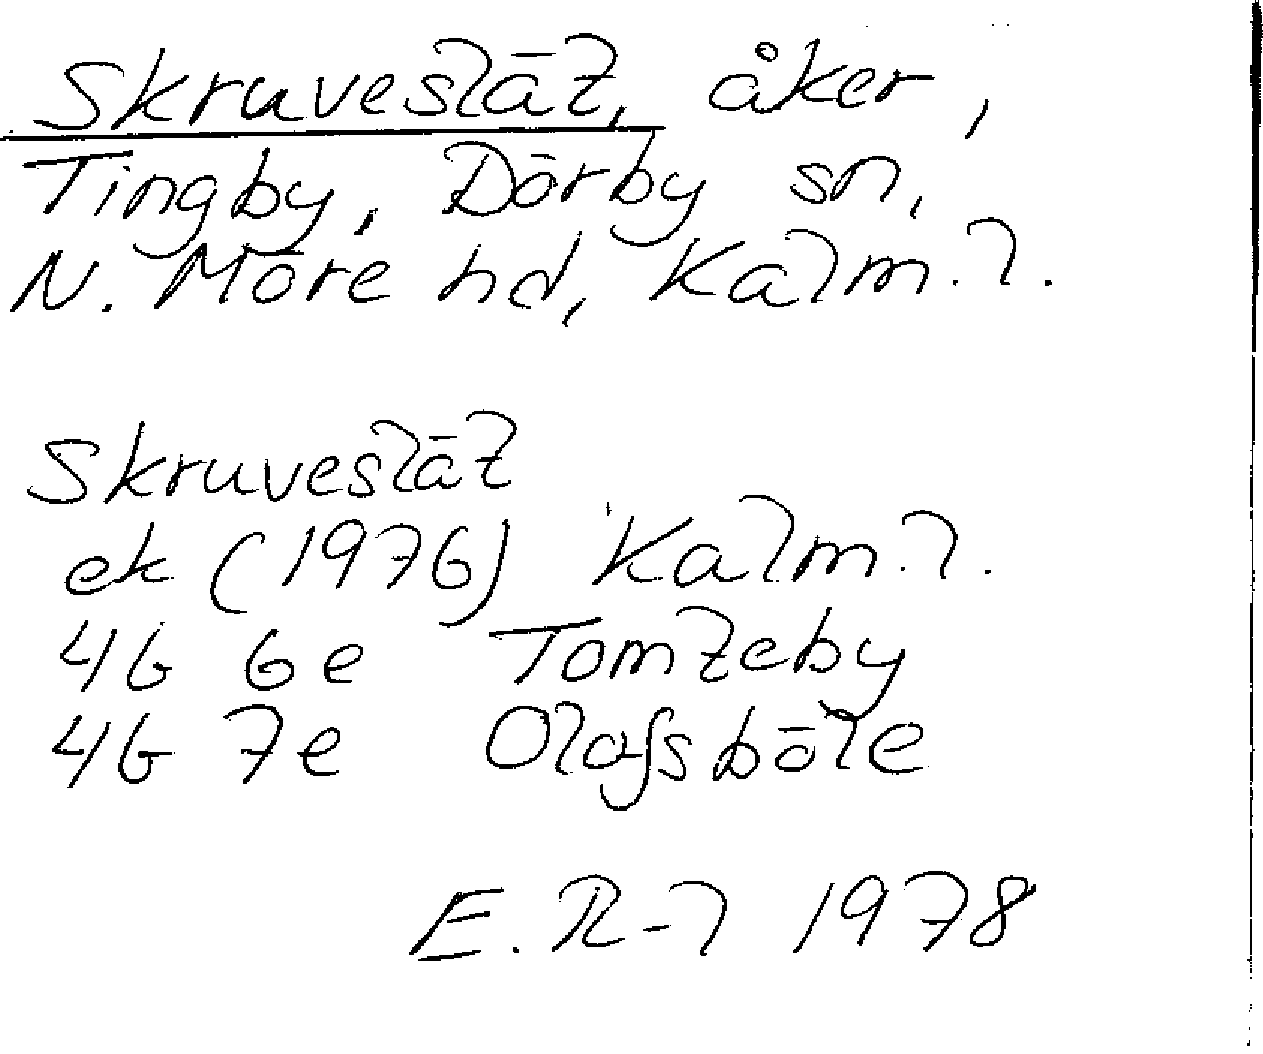 Skruveslät, åker,
Tingby, Dörby sn,
N. Möre hd, Kalm. l.
Skruveslät
ek (1976) Kalm. l.
4G 6e Tomteby
4G 7e Olofsböle
E. R-l 1978